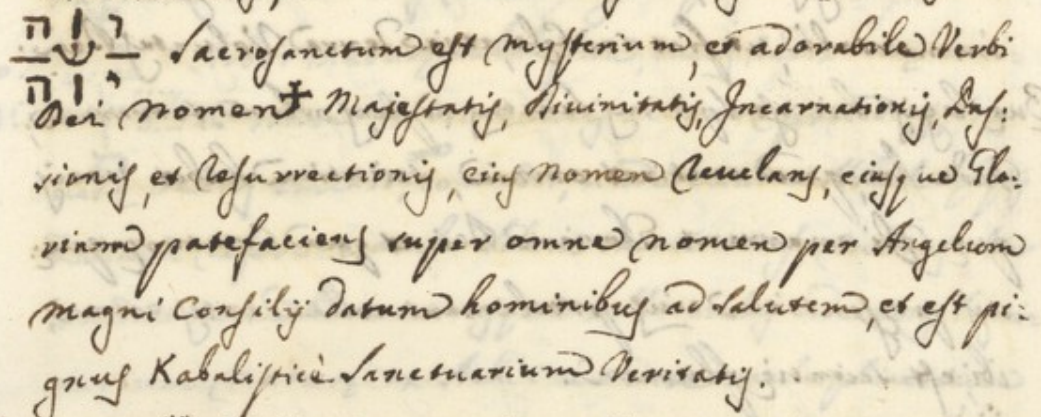 רוה
ש Sacrosanctum est Mysterium, et adorabile Verbi
יוה
Dei Nomen✝ Majestatis, Divinitatis, Incarnationis, Pas:
sionis, et Resurrectionis, eius Nomen Revelans, eiusque Glo:
riam patefaciens super omne nomen per Angelum
magni Consilij datum hominibus ad Salutem, et est pi:
gnus Kabalisticè Sanctuarium Veritatis.